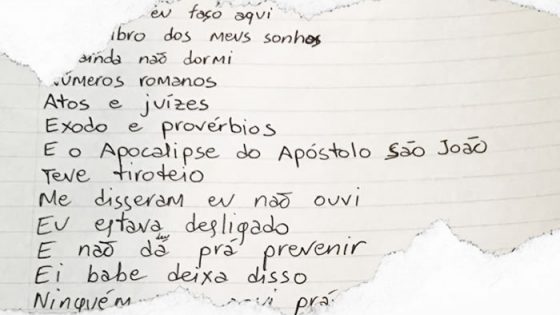 eu faço aqui
dos meus sonhos
ainda não dormi
Números romanos
Atos e juízes
Exodo e provérbios
E o Apocalipse do Apóstolo São João
Teve tiroteio
Me disseram eu não ouvi
Eu estava desligado
E não dá prá prevenir
Ei babe deixa disso
Ninguém prá